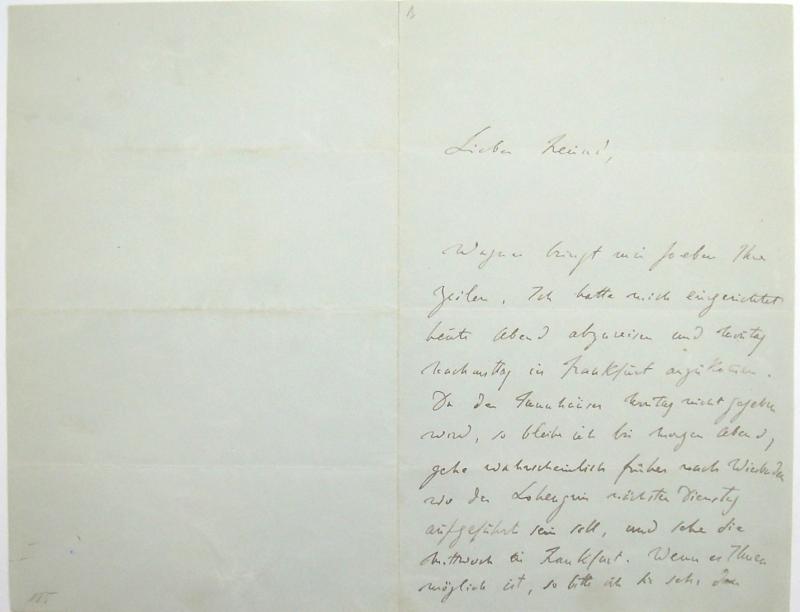 Lieber Freund,
Wagner bringt mir soeben Ihre
Zeilen. Ich hatte mich eingerichtet
heute Abend abzureisen und Montag
Nachmittag in Frankfurt anzukommen.
Da der Tannhäuser Montag nicht gegeben
wird, so bleibe ich bis morgen Abend,
gehe wahrscheinlich früher nach Wiesbaden
wo der Lohengrin nächsten Dienstag
aufgeführt sein soll, und sehe Sie
Mittwoch in Frankfurt. Wenn es Ihnen
möglich ist, so bitte ich Sie sehr, den